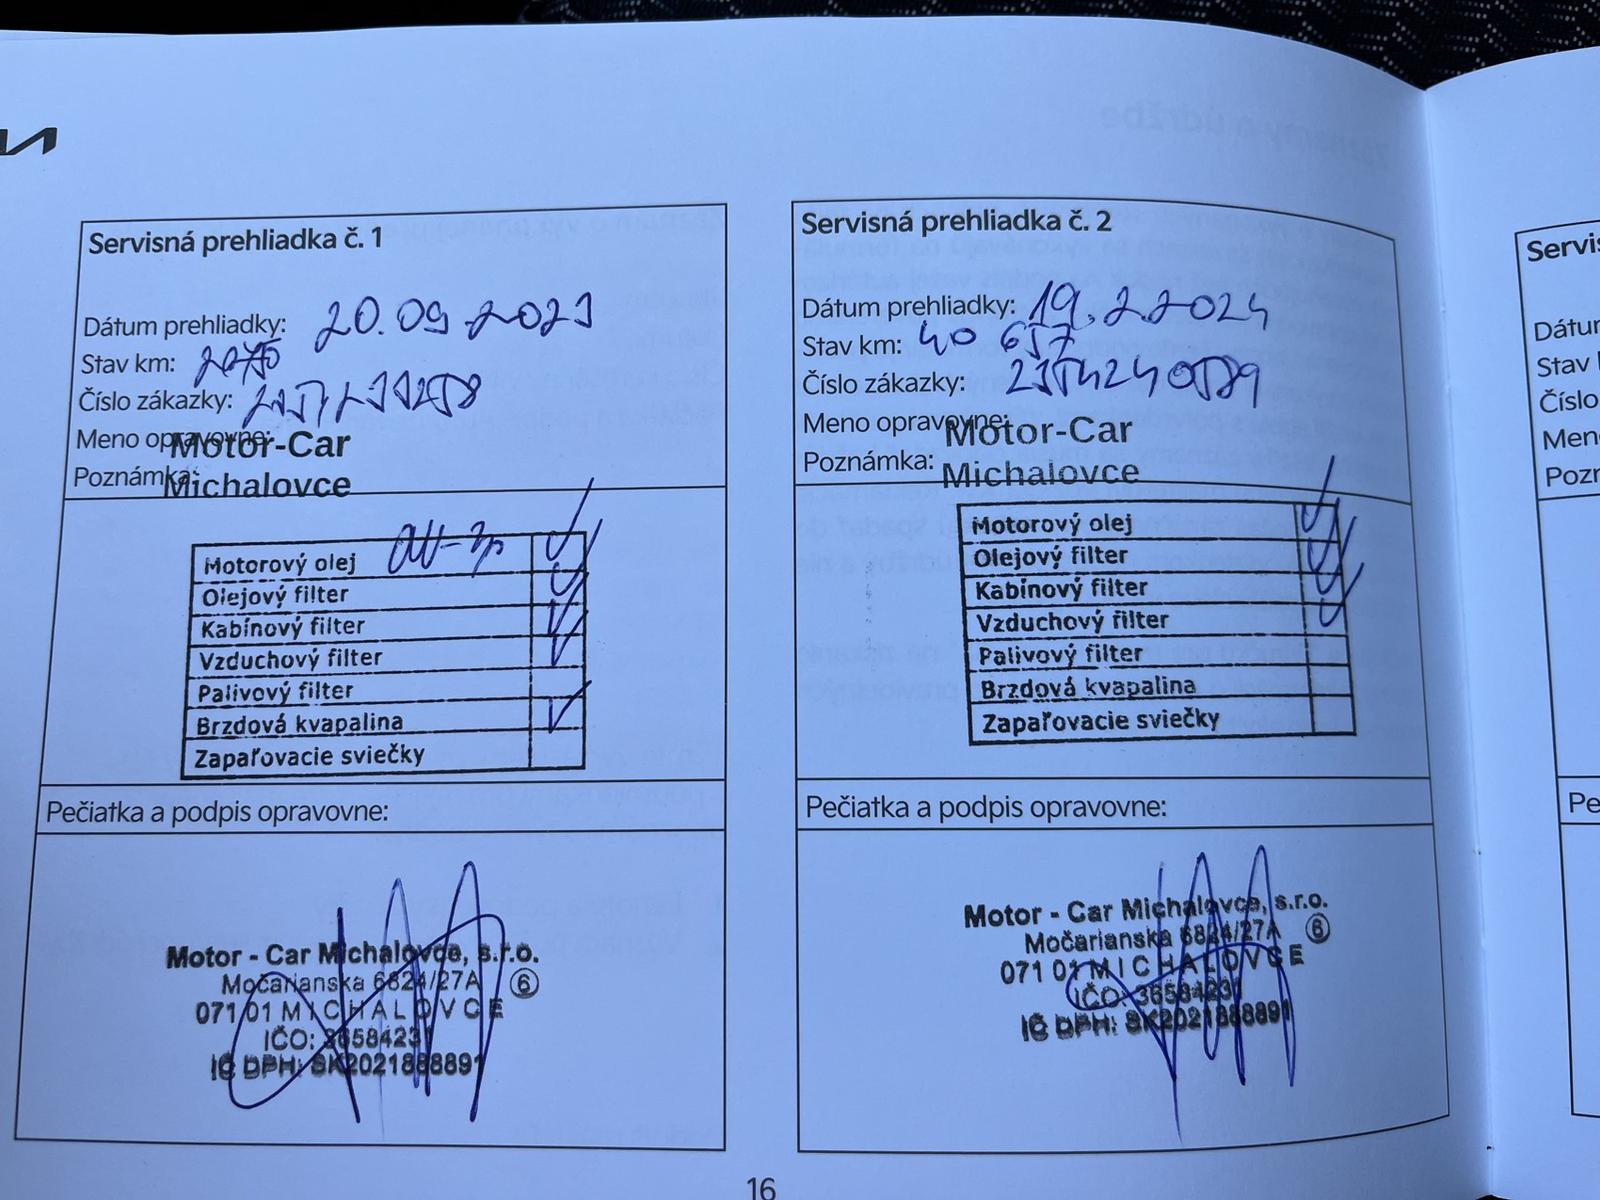 Servisná prehliadka č. 1
Dátum prehliadky: 20.09.2023
Stav km:
Číslo zákazky:
Meno opravovne: Motor-Car
Poznámka: Michalovce
Motorový olej
Olejový filter
Kabínový filter
Vzduchový filter
Palivový filter
Brzdová kvapalina
Zapaľovacie sviečky
Pečiatka a podpis opravovne:
Motor - Car Michalovce, s.r.o.
Močarianska 6824/27A 6
071 01 MICHALOVCE
IČO: 36584231
IČ DPH: SK2021888891
Servisná prehliadka č. 2
Dátum prehliadky: 19.2.2024
Stav km: 40 657
Číslo zákazky:
Meno opravovne: Motor-Car
Poznámka: Michalovce
Motorový olej
Olejový filter
Kabínový filter
Vzduchový filter
Palivový filter
Brzdová kvapalina
Zapaľovacie sviečky
Pečiatka a podpis opravovne:
Motor - Car Michalovce, s.r.o.
Močarianska 6824/27A 6
071 01 MICHALOVCE
IČO: 36584231
IČ DPH: SK2021888891
16